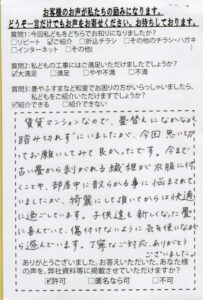 お客様のお声が私たちの励みになります。
どうぞ一言だけでもお声をお寄せください。お待ちしております。
質問1:今回私どもをどちらでお知りになりましたか?
□リピート ☑ご紹介 □折込チラシ □その他のチラシ・ハガキ
□インターネット □その他( )
質問2:私どもの工事にはご満足いただけましたでしょうか?
☑大満足 □満足 □やや不満 □不満
質問3:畳やふすまなど和室でお困りの方がいらっしゃいましたら、
私どもをご紹介いただけますでしょうか?
☑紹介できる □紹介できない
賃貸マンションなので、畳替えになかなか
踏み切れずにいましたが、今回思い切
ってお願いしてみて良かったです。今まで
古い畳から剥がれる繊維が衣服に付
くことや、部屋中に散らかる事に悩まされて
いましたが、綺麗にして頂いてからは快適
に過ごしています。子供達も新しくなった畳
に喜んでいて、傷付けないように気を使いなが
ら遊んでいます。丁寧なご対応、ありがとう
ございました。
ありがとうございました。お答えいただいた、あなた様
の声を、弊社資料等に掲載させていただけますか?
☑許可 □匿名なら可 □不可